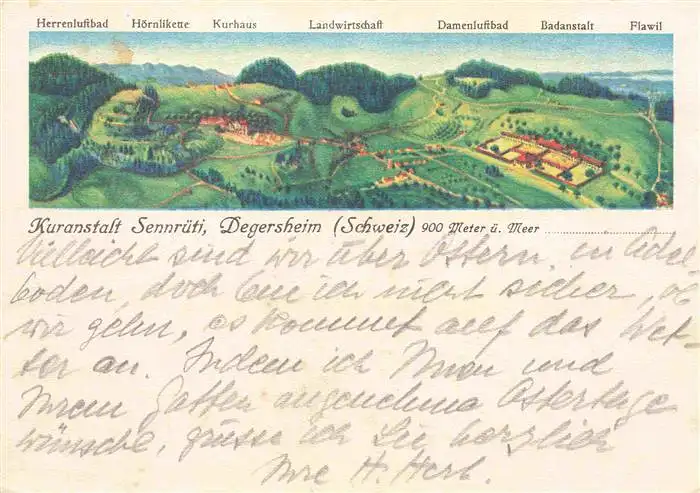 Herrenluftbad Hörnlikette Kurhaus Landwirtschaft Damenluftbad Badanstalt Flawil
Kuranstalt Sennrüti, Degersheim (Schweiz) 900 Meter ü. Meer
Vielleicht sind wir über Ostern in Adel
boden, doch bin ich nicht sicher, ob
wir gehn, es kommt auf das Wet-
ter an. Indem ich Ihnen und
Ihrem Gatten angenehme Ostertage
wünsche, grüsse ich Sie herzlich
Ihre H. Herb.